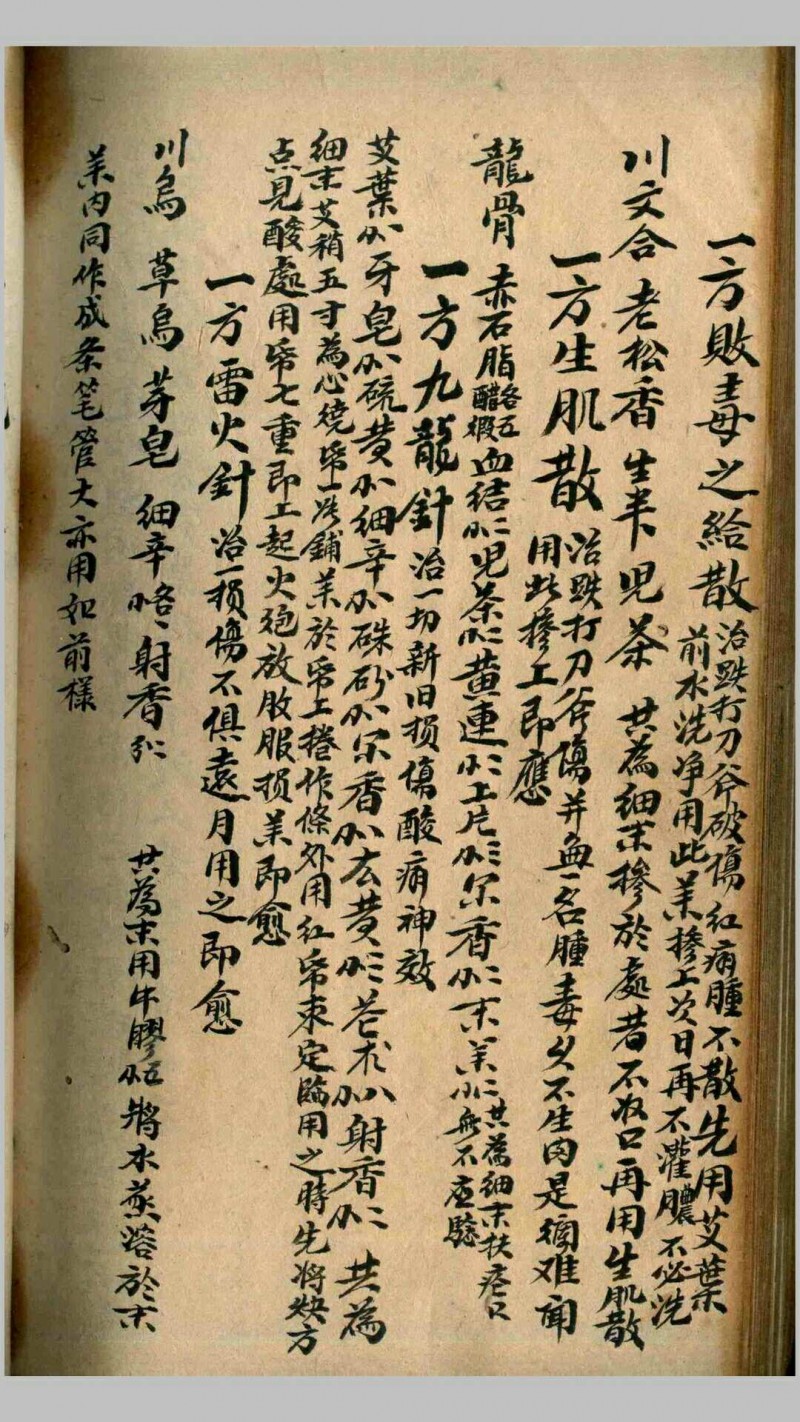 一方敗毒之給散 治跌打刀斧破傷紅痛腫不散先用艾葉
前水洗净用此羕摻上次日再不灌膿不必洗
川文合 老松香 生半 児茶 共為細末摻於處若不收口再用生肌散
一方生肌散 治跌打刀斧傷并無名腫毒久不生肉是獨难聞
用此摻上即應
龍骨 赤石脂 醋煅 各五 血結 児茶 黄連 上片 末羕 共為細末扶瘡口
無不应驗
一方九龍針 治一切新旧损傷酸痛神效
艾葉 牙皂 硫黄 細辛 硃砂 香 黄 苍术 射香 共為
細末艾稍五寸為心繞帋一次鋪羕於帋上捲作條外用紅帋束定臨用之時先将
点見酸處用帋七重即上起火炮放放服损羕即愈
一方雷火針 治一损傷不俱遠月用之即愈
川烏 草烏 芽皂 細辛 射香 共為末用牛膠 將水蒸溶於末
羕内同作成条笔管大亦用如前樣